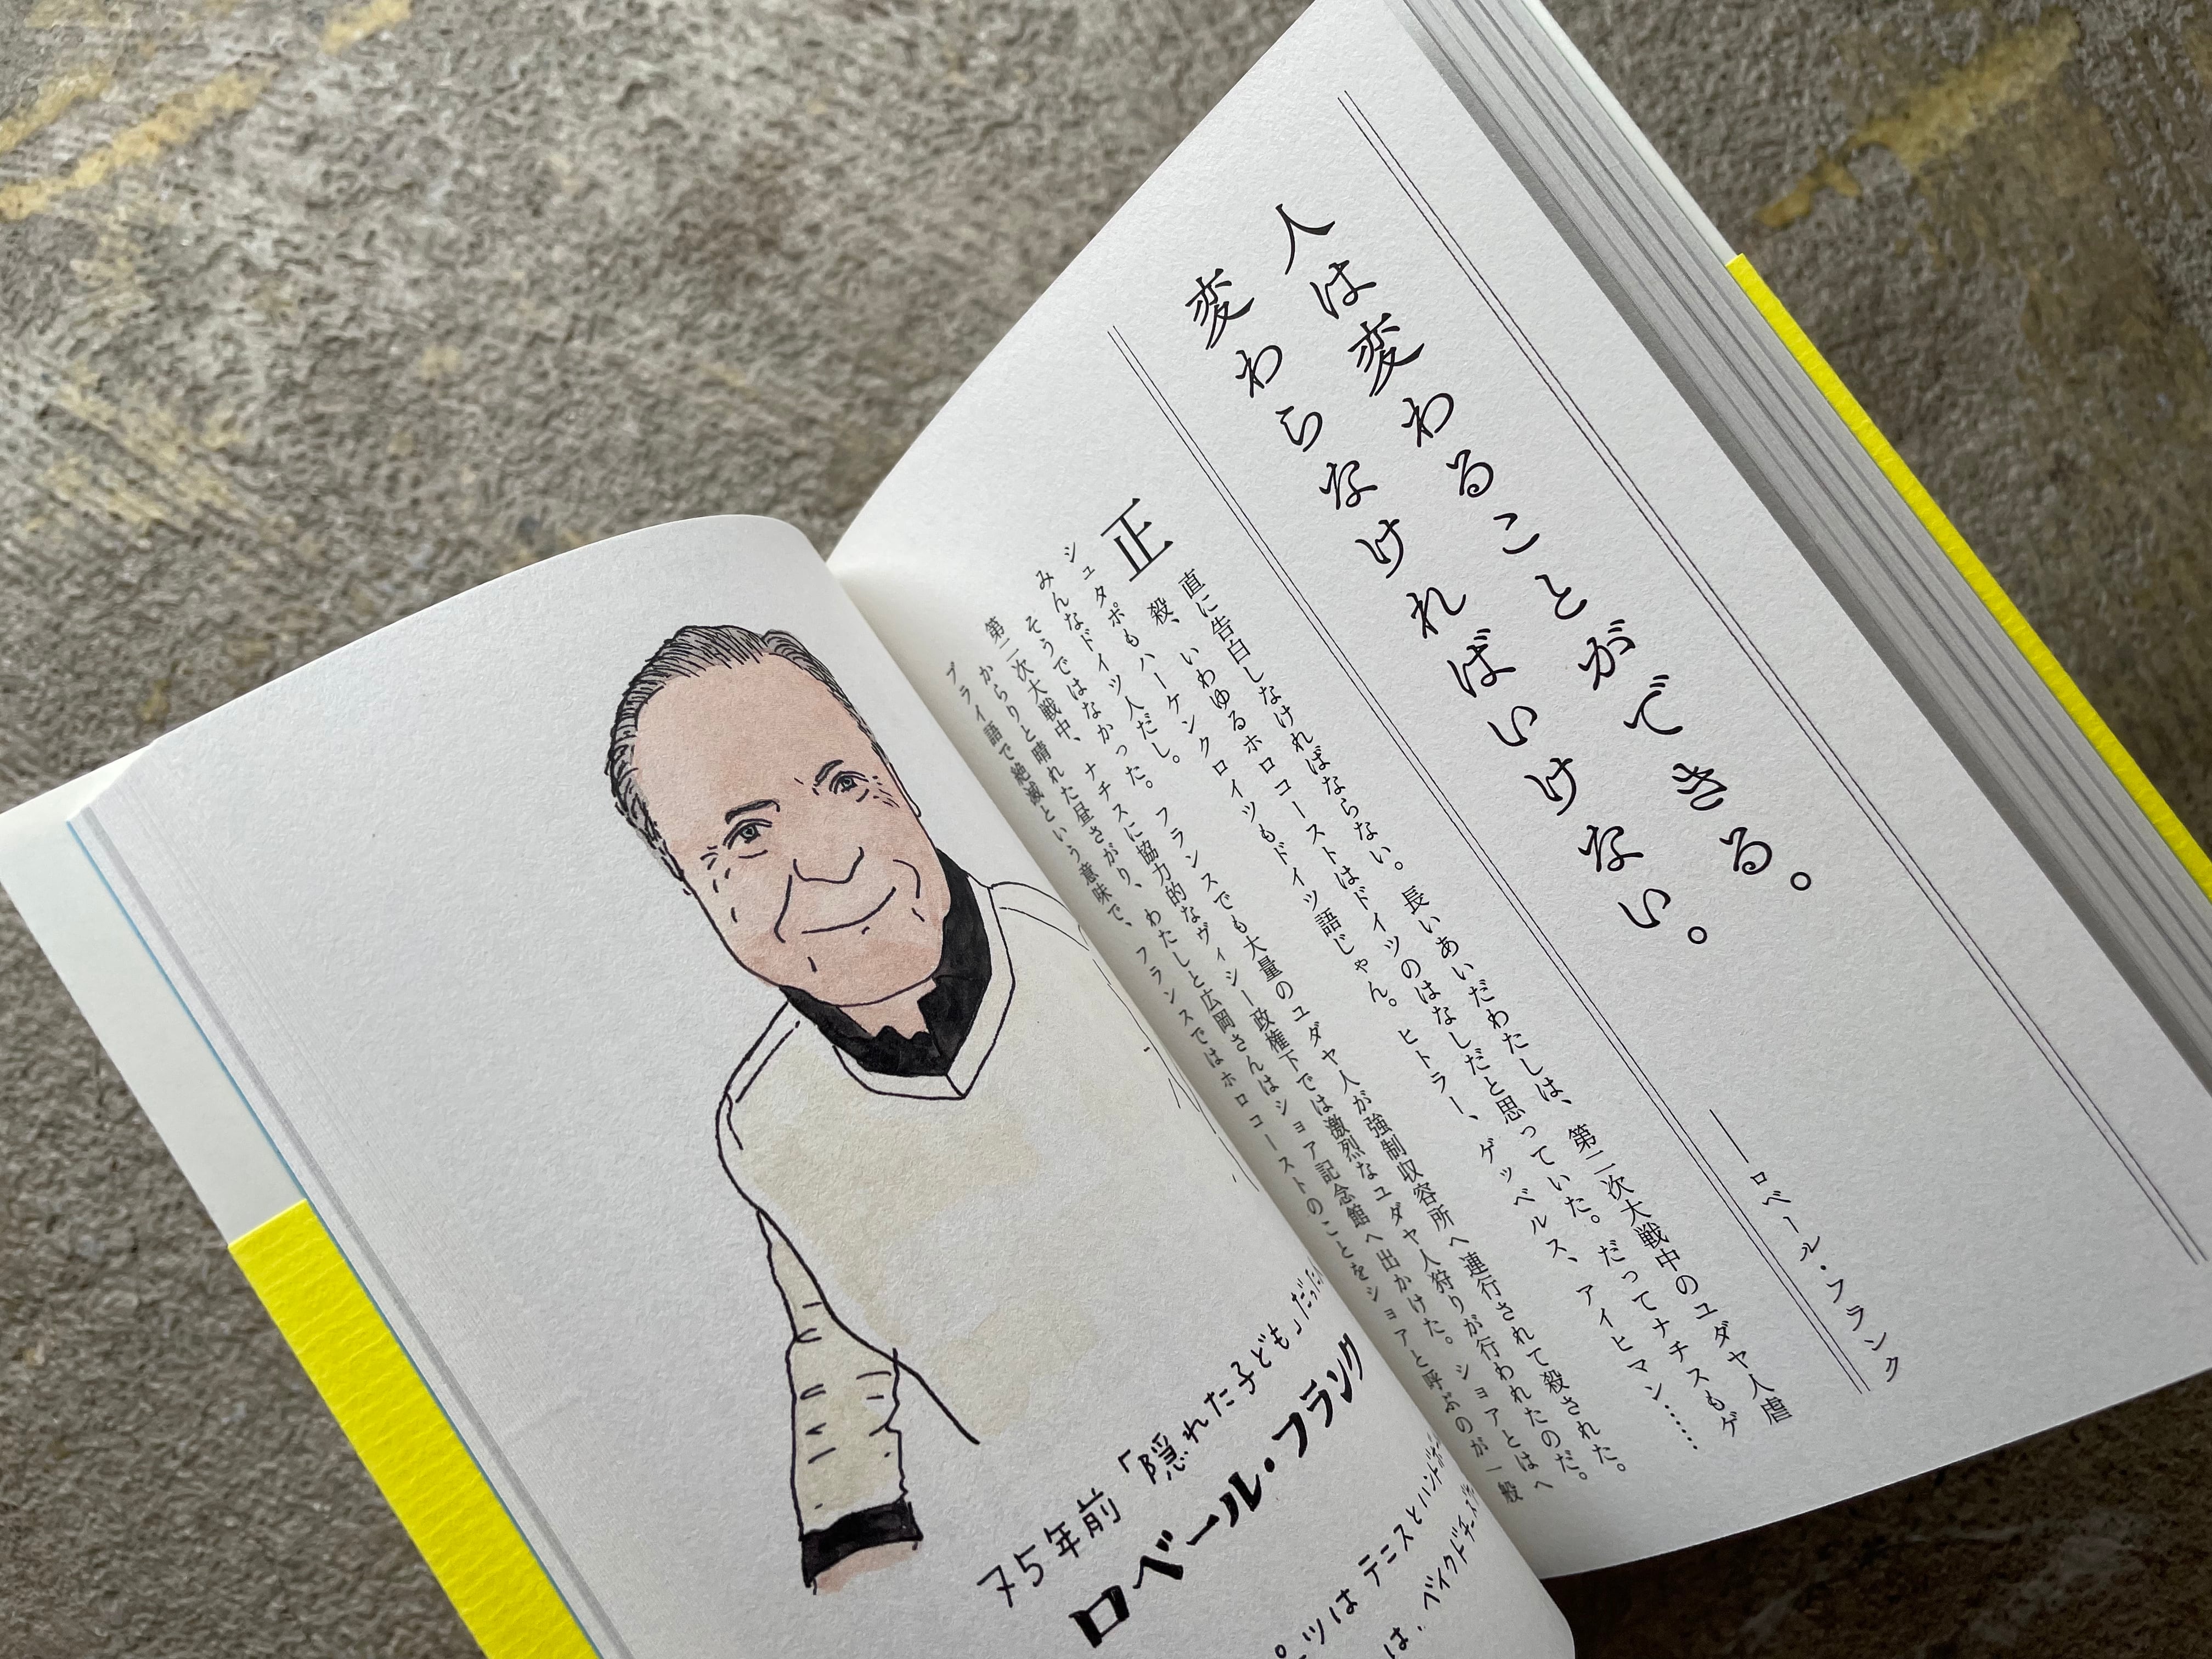 人は変わることができる。
変わらなければいけない。
――ロベール・フランク
正直に告白しなければならない。長いあいだわたしは、第二次大戦中のユダヤ人虐
殺、いわゆるホロコーストはドイツのはなしだと思っていた。だってナチスもゲ
シュタポもハーケンクロイツもドイツ語じゃん。ヒトラー、ゲッベルス、アイヒマン……
みんなドイツ人だし。
そうではなかった。フランスでも大量のユダヤ人が強制収容所へ連行されて殺された。
第二次大戦中、ナチスに協力的なヴィシー政権下では激烈なユダヤ人狩りが行われたのだ。
からりと晴れた昼さがり、わたしと広岡さんはショア記念館へ出かけた。ショアとはヘ
ブライ語で絶滅という意味で、フランスではホロコーストのことをショアと呼ぶのが一般
75年前「隠れた子ども」だった
ロベール・フランク
ーツはテニスとハンド
は、ベイクドチーズ